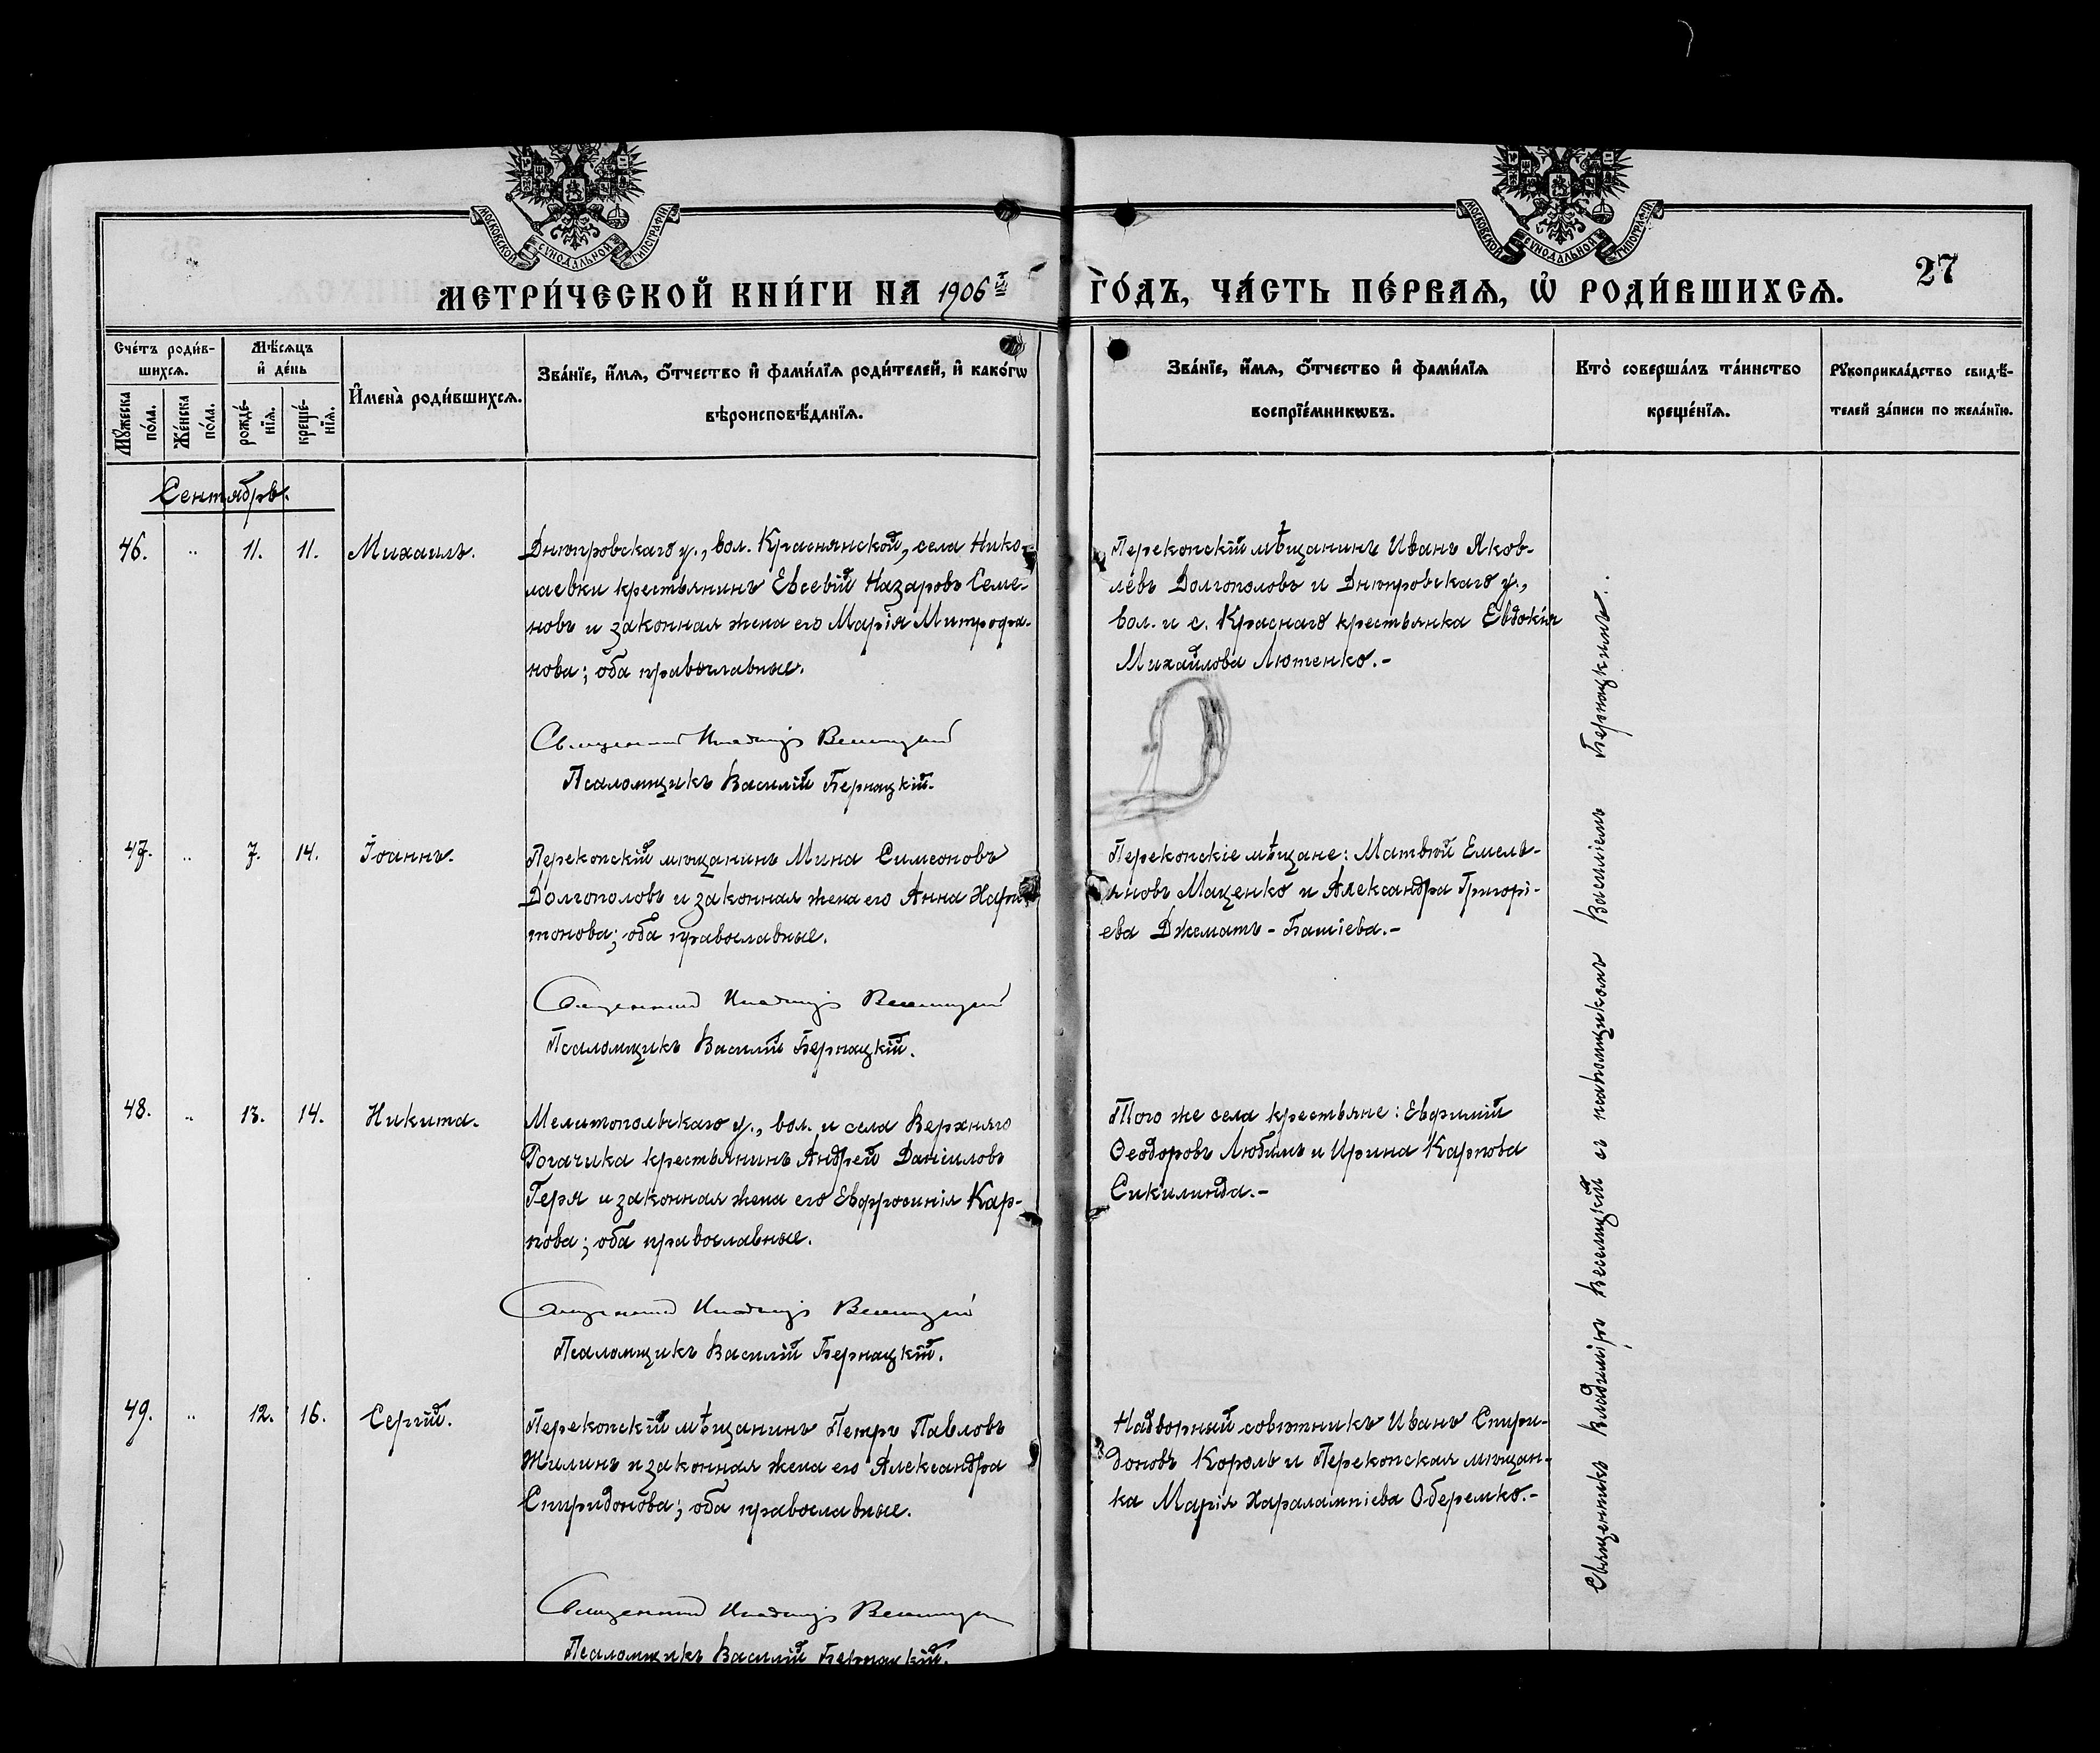 МОСКОВСКОЙ СѴНОДАЛЬНОЙ ТИПОГРАФІИ
МОСКОВСКОЙ СѴНОДАЛЬНОЙ ТИПОГРАФІИ
27
МЕТРИ́ЧЕСКОЙ КНИ́ГИ НА 1906й ГО́ДЪ, ЧА́СТЬ ПЕ́РВАѦ, Ѡ҆ РОДИ́ВШИХСѦ.
Сче́тъ роди́в-
шихсѧ.
Мꙋ́жеска
по́ла.
Же́нска
по́ла.
Мѣ́сѧцъ
и҆ де́нь
рожде́-
нїѧ.
креще́-
нїѧ.
И҆мена̀ роди́вшихсѧ.
Зва́нїе, и҆́мѧ, ѻ҆́тчество и҆ фами́лїѧ роди́телей, и҆ како́гѡ
вѣроисповѣ́данїѧ.
Зва́нїе, и҆́мѧ, ѻ҆́тчество и҆ фами́лїѧ
воспрїе́мникѡвъ.
Кто̀ соверша́лъ та́инство
креще́нїѧ.
Рꙋкоприкла́дство свидѣ́-
телей за́писи по жела́нїю.
Сентябрь.
46. „ 11. 11. Михаилъ.
Днѣпровскаго у., вол. Краснянской, села Нико-
лаевки крестьянинъ Евсевій Назаровъ Семе-
новъ и законная жена его Марія Митрофа-
нова; оба православные.
Священникъ Владиміръ Веселицкій
Псаломщикъ Василій Бернацкій.
Перекопскій мѣщанинъ Иванъ Яков-
левъ Долгополовъ и Днѣпровскаго у.,
вол. и с. Краснаго крестьянка Евдокія
Михайлова Лютенко.-
47. „ 7. 14. Іоаннъ.
Перекопскій мѣщанинъ Мина Симеоновъ
Долгополовъ и законная жена его Анна Хари-
тонова; оба православные.
Священникъ Владиміръ Веселицкій
Псаломщикъ Василій Бернацкій.
Перекопскіе мѣщане: Матвѣй Емель-
яновъ Маценко и Александра Григорі-
ева Джематъ-Башіева.-
48. „ 13. 14. Никита.
Мелитопольскаго у., вол. и села Верхняго
Рогачика крестьянинъ Андрей Даніиловъ
Геря и законная жена его Евфросинія Кар-
пова; оба православные.
Священникъ Владиміръ Веселицкій
Псаломщикъ Василій Бернацкій.
Того же села крестьяне: Евфимій
Ѳеодоровъ Любимъ и Ирина Карпова
Сикилинда.-
49. „ 12. 16. Сергій.
Перекопскій мѣщанинъ Петръ Павловъ
Жилинъ и законная жена его Александра
Спиридонова; оба православные.
Священникъ Владиміръ Веселицкій
Псаломщикъ Василій Бернацкій.
Надворный совѣтникъ Иванъ Спири-
доновъ Король и Перекопская мѣщан-
ка Марія Харалампіева Оберемко.-
Священникъ Владиміръ Веселицкій съ псаломщикомъ Василіемъ Бернацкимъ.